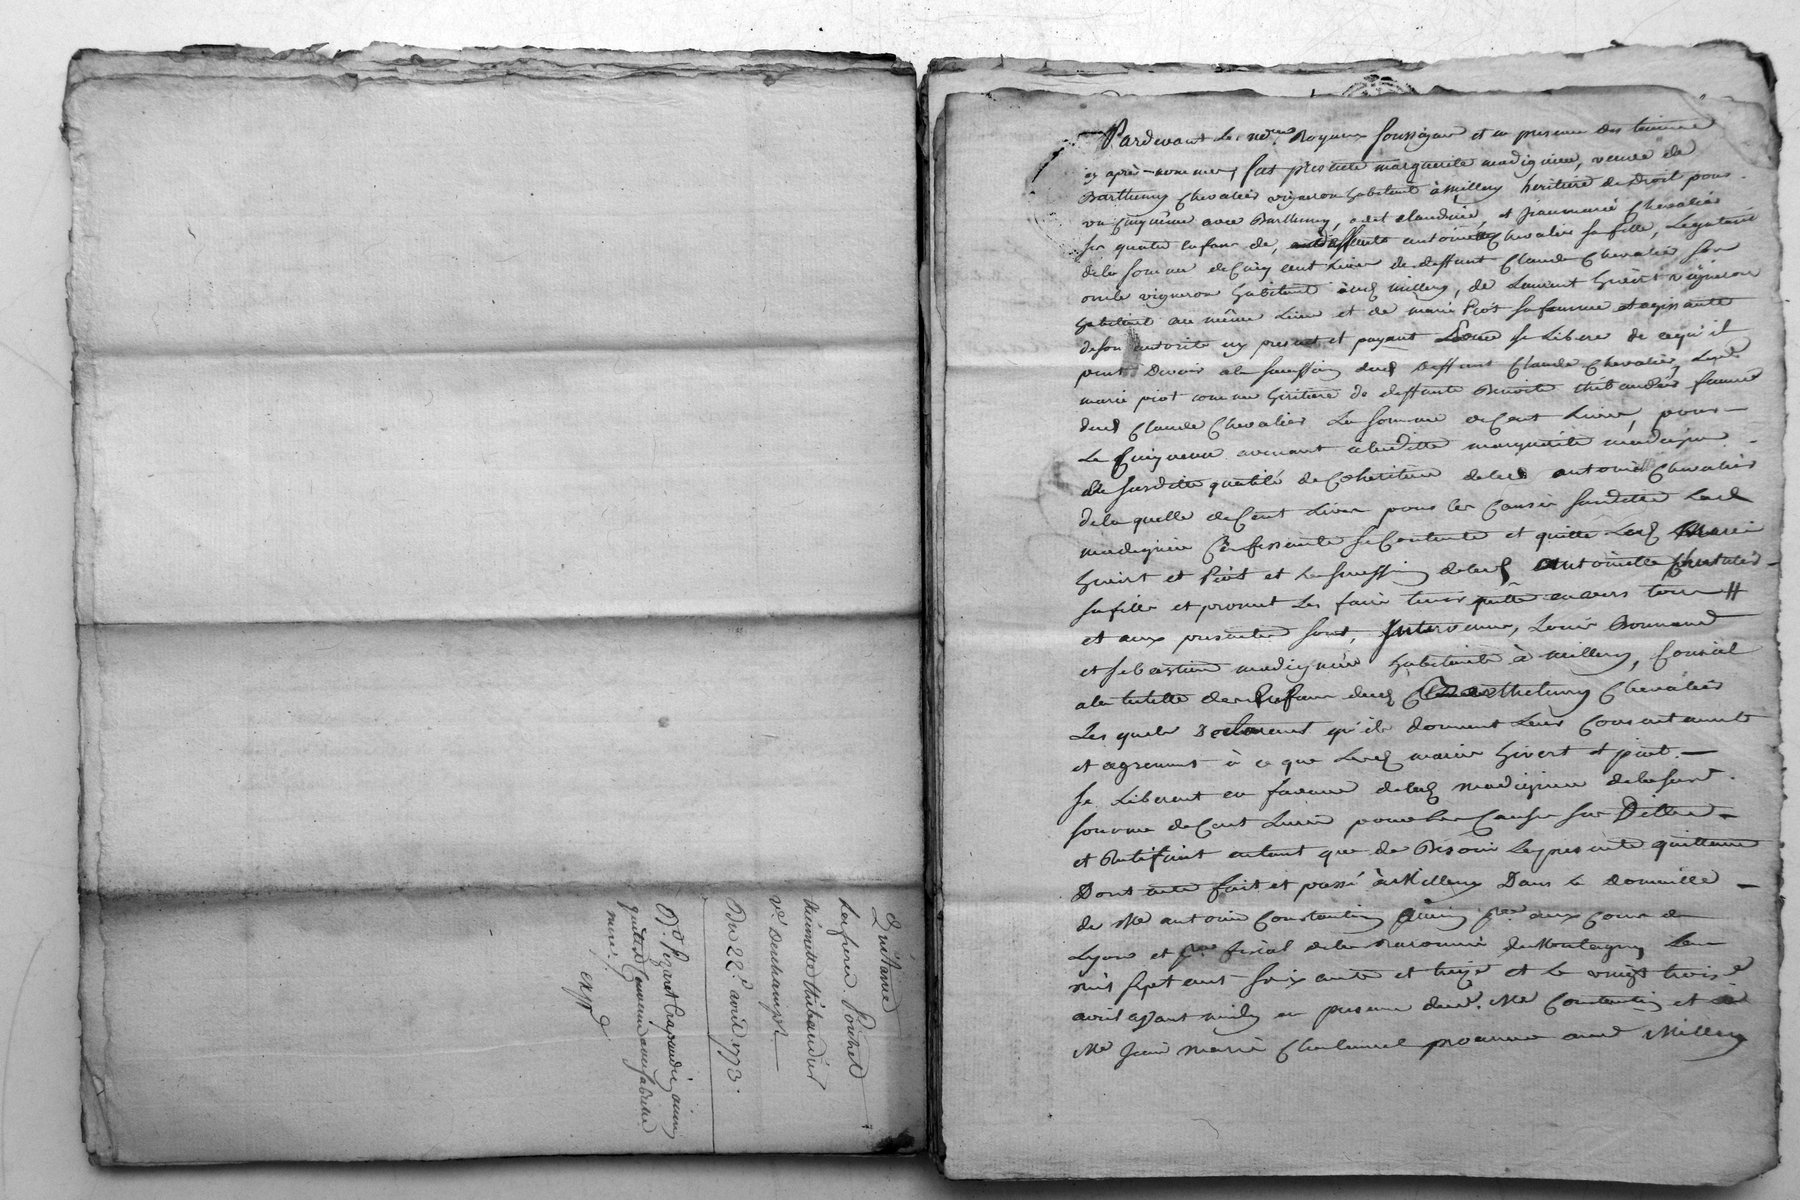 Quittance
Les freres Pouchet
Thibaudier
Du 22e avril 1773.
Pardevant le no.re Royal soussigné et en presence des temoins
cy après nommés, fut presente marguerite madignier, veuve de
Barthelemy Chevalier vigneron habitant à millery heritiere de droit pour
un cinquième avec Barthelemy, et jean marie Chevalier
ses quatre enfans de, antoinette Chevalier sa fille, Legataire
de la somme de cinq cent livres de deffunt Claude Chevalier son
oncle vigneron habitant aud millery, de Laurent Givert vigneron
habitant au même lieu et de marie Piot sa femme et agissante
de son autorité cy present et payant se libere de ce qu'il
peut devoir a la succession dud deffunt Claude Chevalier, Lad
marie piot comme heritiere de deffunte Benoite thibaudier femme
dud Claude Chevalier La somme de Cent Livres pour
Le Cinquième avenant à laditte marguerite madignier
de susditte qualité de Coheritiere de lad antoinette Chevalier
de la quelle de Cent Livres pour les Causes susdittes Lad
madignier Confessante se Contente et quitte Lesd Mariés
Givert et Piot et la succession de lad antoinette Chevalier
sa fille et promet les faire tenir quitte envers tous
et aux presentes sont, Intervenus, Louis Bonnand
et sebastien madignier habitants à millery, Conseil
a la tutelle des Enfans dud Barthelemy Chevalier
Les quels Declarent qu'ils donnent Leurs Consentement
et agrement à ce que Lesd mariés Givert et piot
se Liberent en faveur de lad madignier de la susd
somme de Cent Livres pour les Causes sus Dittes
et Ratifient entant que de Besoin La presente quittance
Dont acte fait et passé à Millery Dans le domicille
de Me antoine Constantin aux Cours de
Lyon et fiscal de la Baronnie de Montagny L'an
mil sept cent soixante et treize et le vingt trois e
avril avant midy en presence dud. Me Constantin et de
Me Jean Marie aud Millery